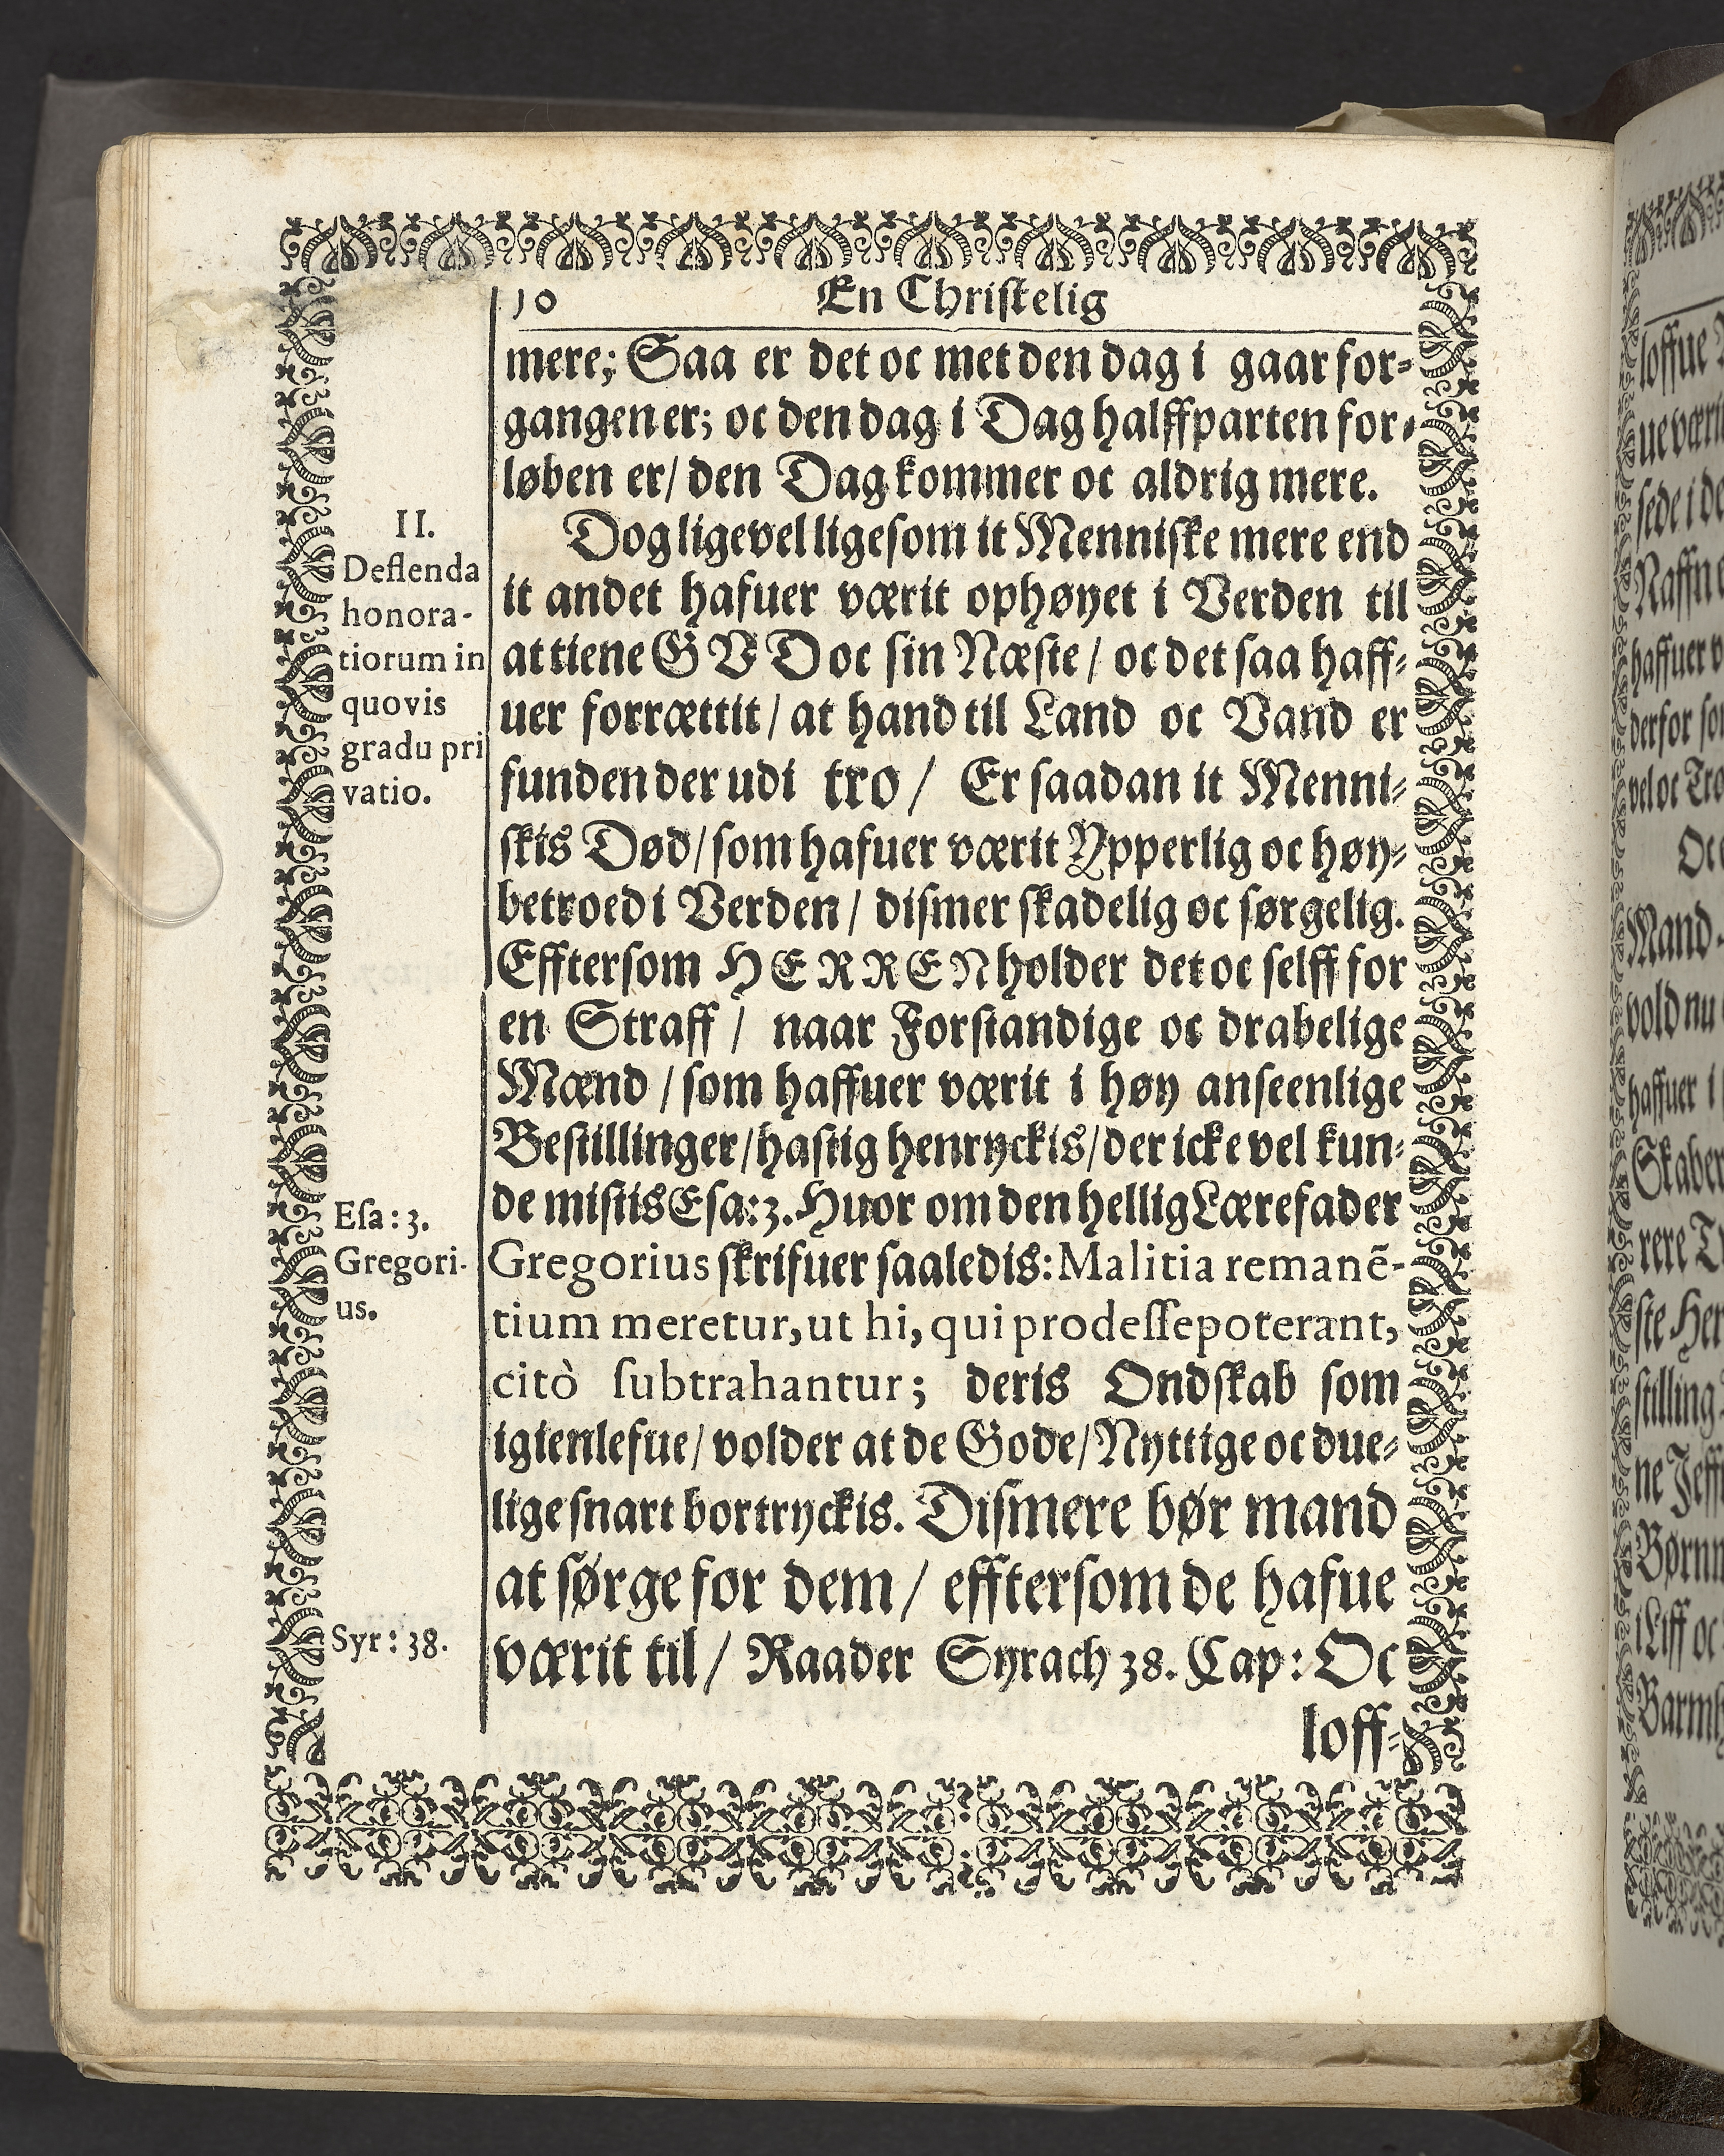 10 En Christelig
mere; Saa er det oc met den dag i gaar for-
gangen er; oc den dag i Dag halffparten for-
løben er/ den Dag kommer oc aldrig mere.
II.
Deflenda
honora-
tiorum in
quovis
gradu pri
vatio.
Dog ligevel ligesom it Menniske mere end
it andet hafuer værit ophøyet i Verden til
at tiene GVD oc sin Næste / oc det saa haff-
uer forrættit / at hand til Land oc Vand er
funden der udi tro / Er saadan it Menni-
skis Død / som hafuer værit Ypperlig oc høy-
betroed i Verden / dismer skadelig oc sørgelig.
Efftersom HERREN holder det oc selff for
en Straff / naar Forstandige oc drabelige
Mænd / som haffuer værit i høy anseenlige
Bestillinger / hastig henryckis / der icke vel kun-
de mistis Esa: 3. Huor om den hellig Lærefader
Esa: 3.
Gregori-
us.
Gregorius skrifuer saaledis: Malitia remanẽ-
tium meretur, ut hi, qui prodesse poterant,
citò subtrahantur; deris Ondskab som
igienlefue / volder at de Gode / Nyttige oc due-
lige snart bortryckis. Dismere bør mand
at sørge for dem / efftersom de hafue
Syr: 38.
værit til / Raader Syrach 38. Cap: Oc
loff-